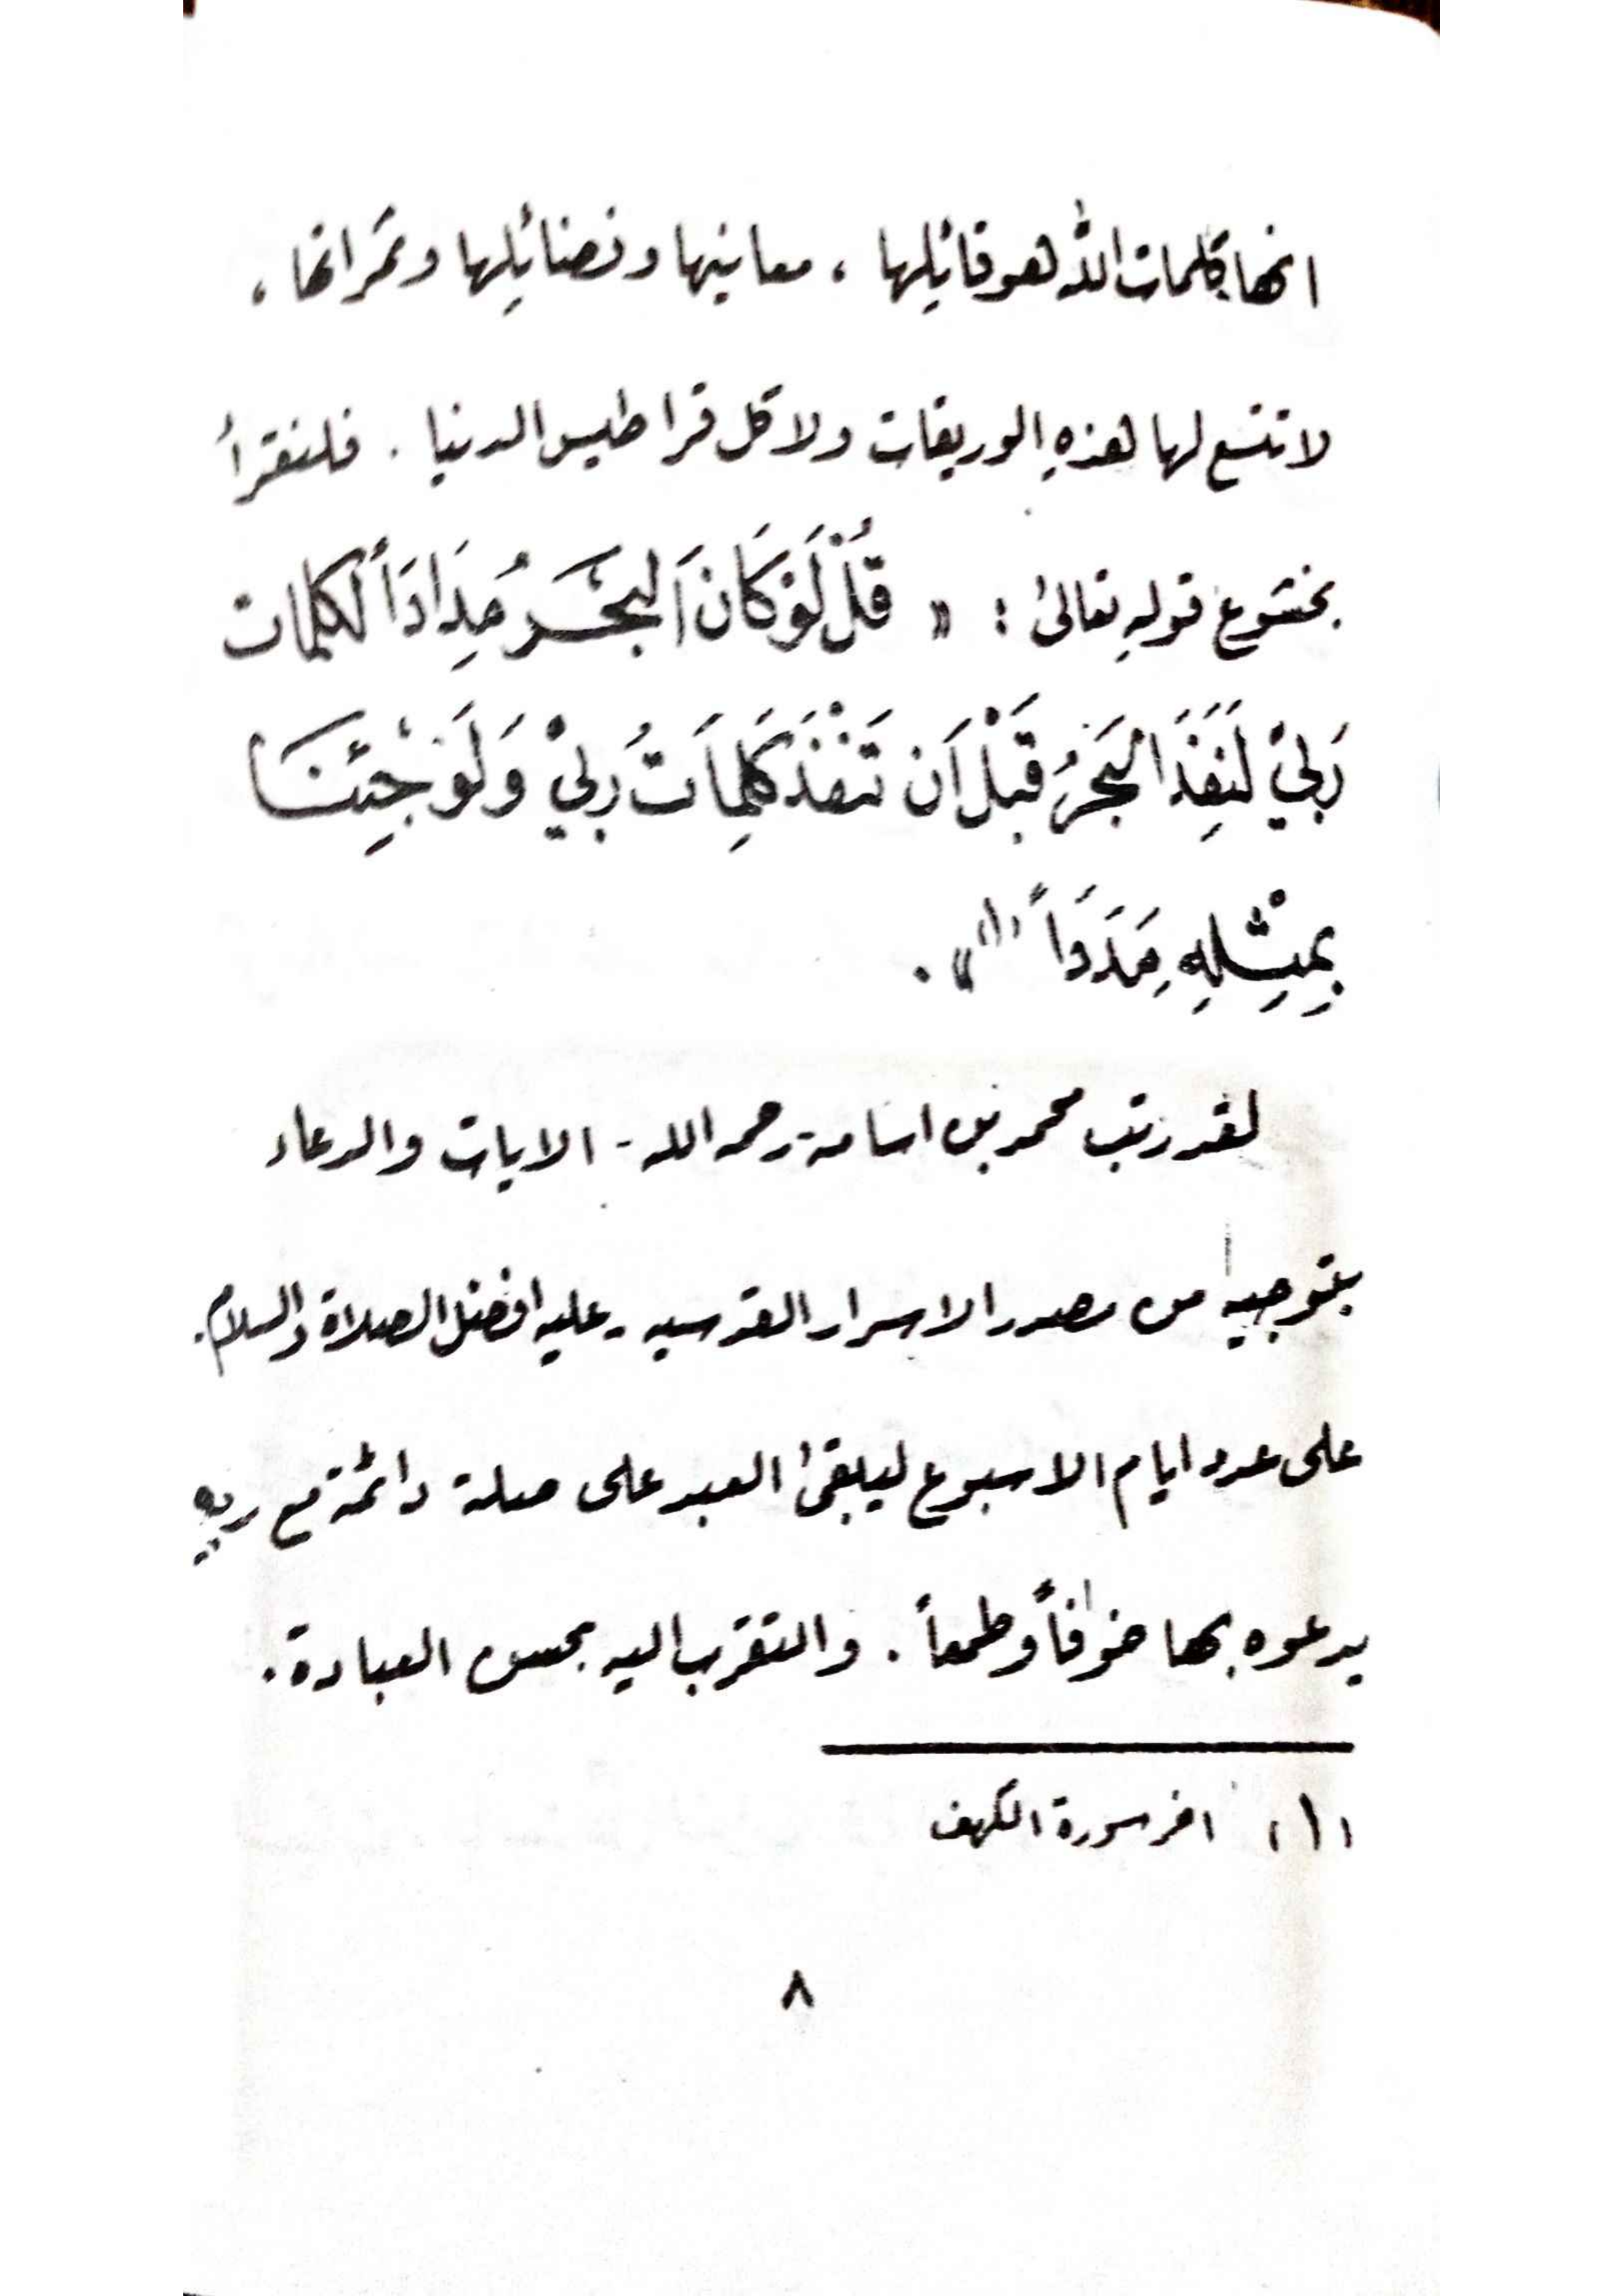 انها كلمات الله هو قائلها ، معانيها وفضائلها وثمراتها ،
لا تتسع لها هذهِ الوريقات ولا كل قراطيس الدنيا . فلنقرأ
بخشوع قولهِ تعالىٰ : « قُلْ لَوْ كَانَ البَحْرُ مِدَادَاً لكلمات
رَبِّيْ لَنَفِذَ البَحْرُ قَبْلَ اَن تَنْفَذَ كَلِمَاتُ رَبِيْ وَلَوْ جِئْنَا
بِمِثْلِهِ مَدَدَاً (١) » .
لقد رتب محمد بن اسامة - رحمه الله - الايات والدعاء
بتوجيه من مصدر الاسرار القدسيه - عليه افضل الصلاة والسلام -
على عدد ايام الاسبوع ليبقىٰ العبد على صلة دائمة مع ربهِ
يدعوه بها خوفاً وطمعاً . والتقرب اليه بحسن العبادة .
(١) اخر سورة الكهف
٨